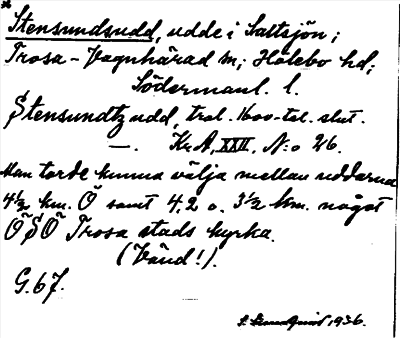 Stensundsudd, udde i Saltsjön;
Trosa-Vagnhärad sn; Hölebo hd;
Södermanl. l.
Stensundtz udd, trol. 1600-tal. slut.
—. Kr A, XXII, N:o 26.
Man torde kunna välja mellan uddarna
4½ km. Ö samt 4,2 o. 3½ km. något
Ö S Ö Trosa stads kyrka.
(Vänd!).
G. 67.
1936.